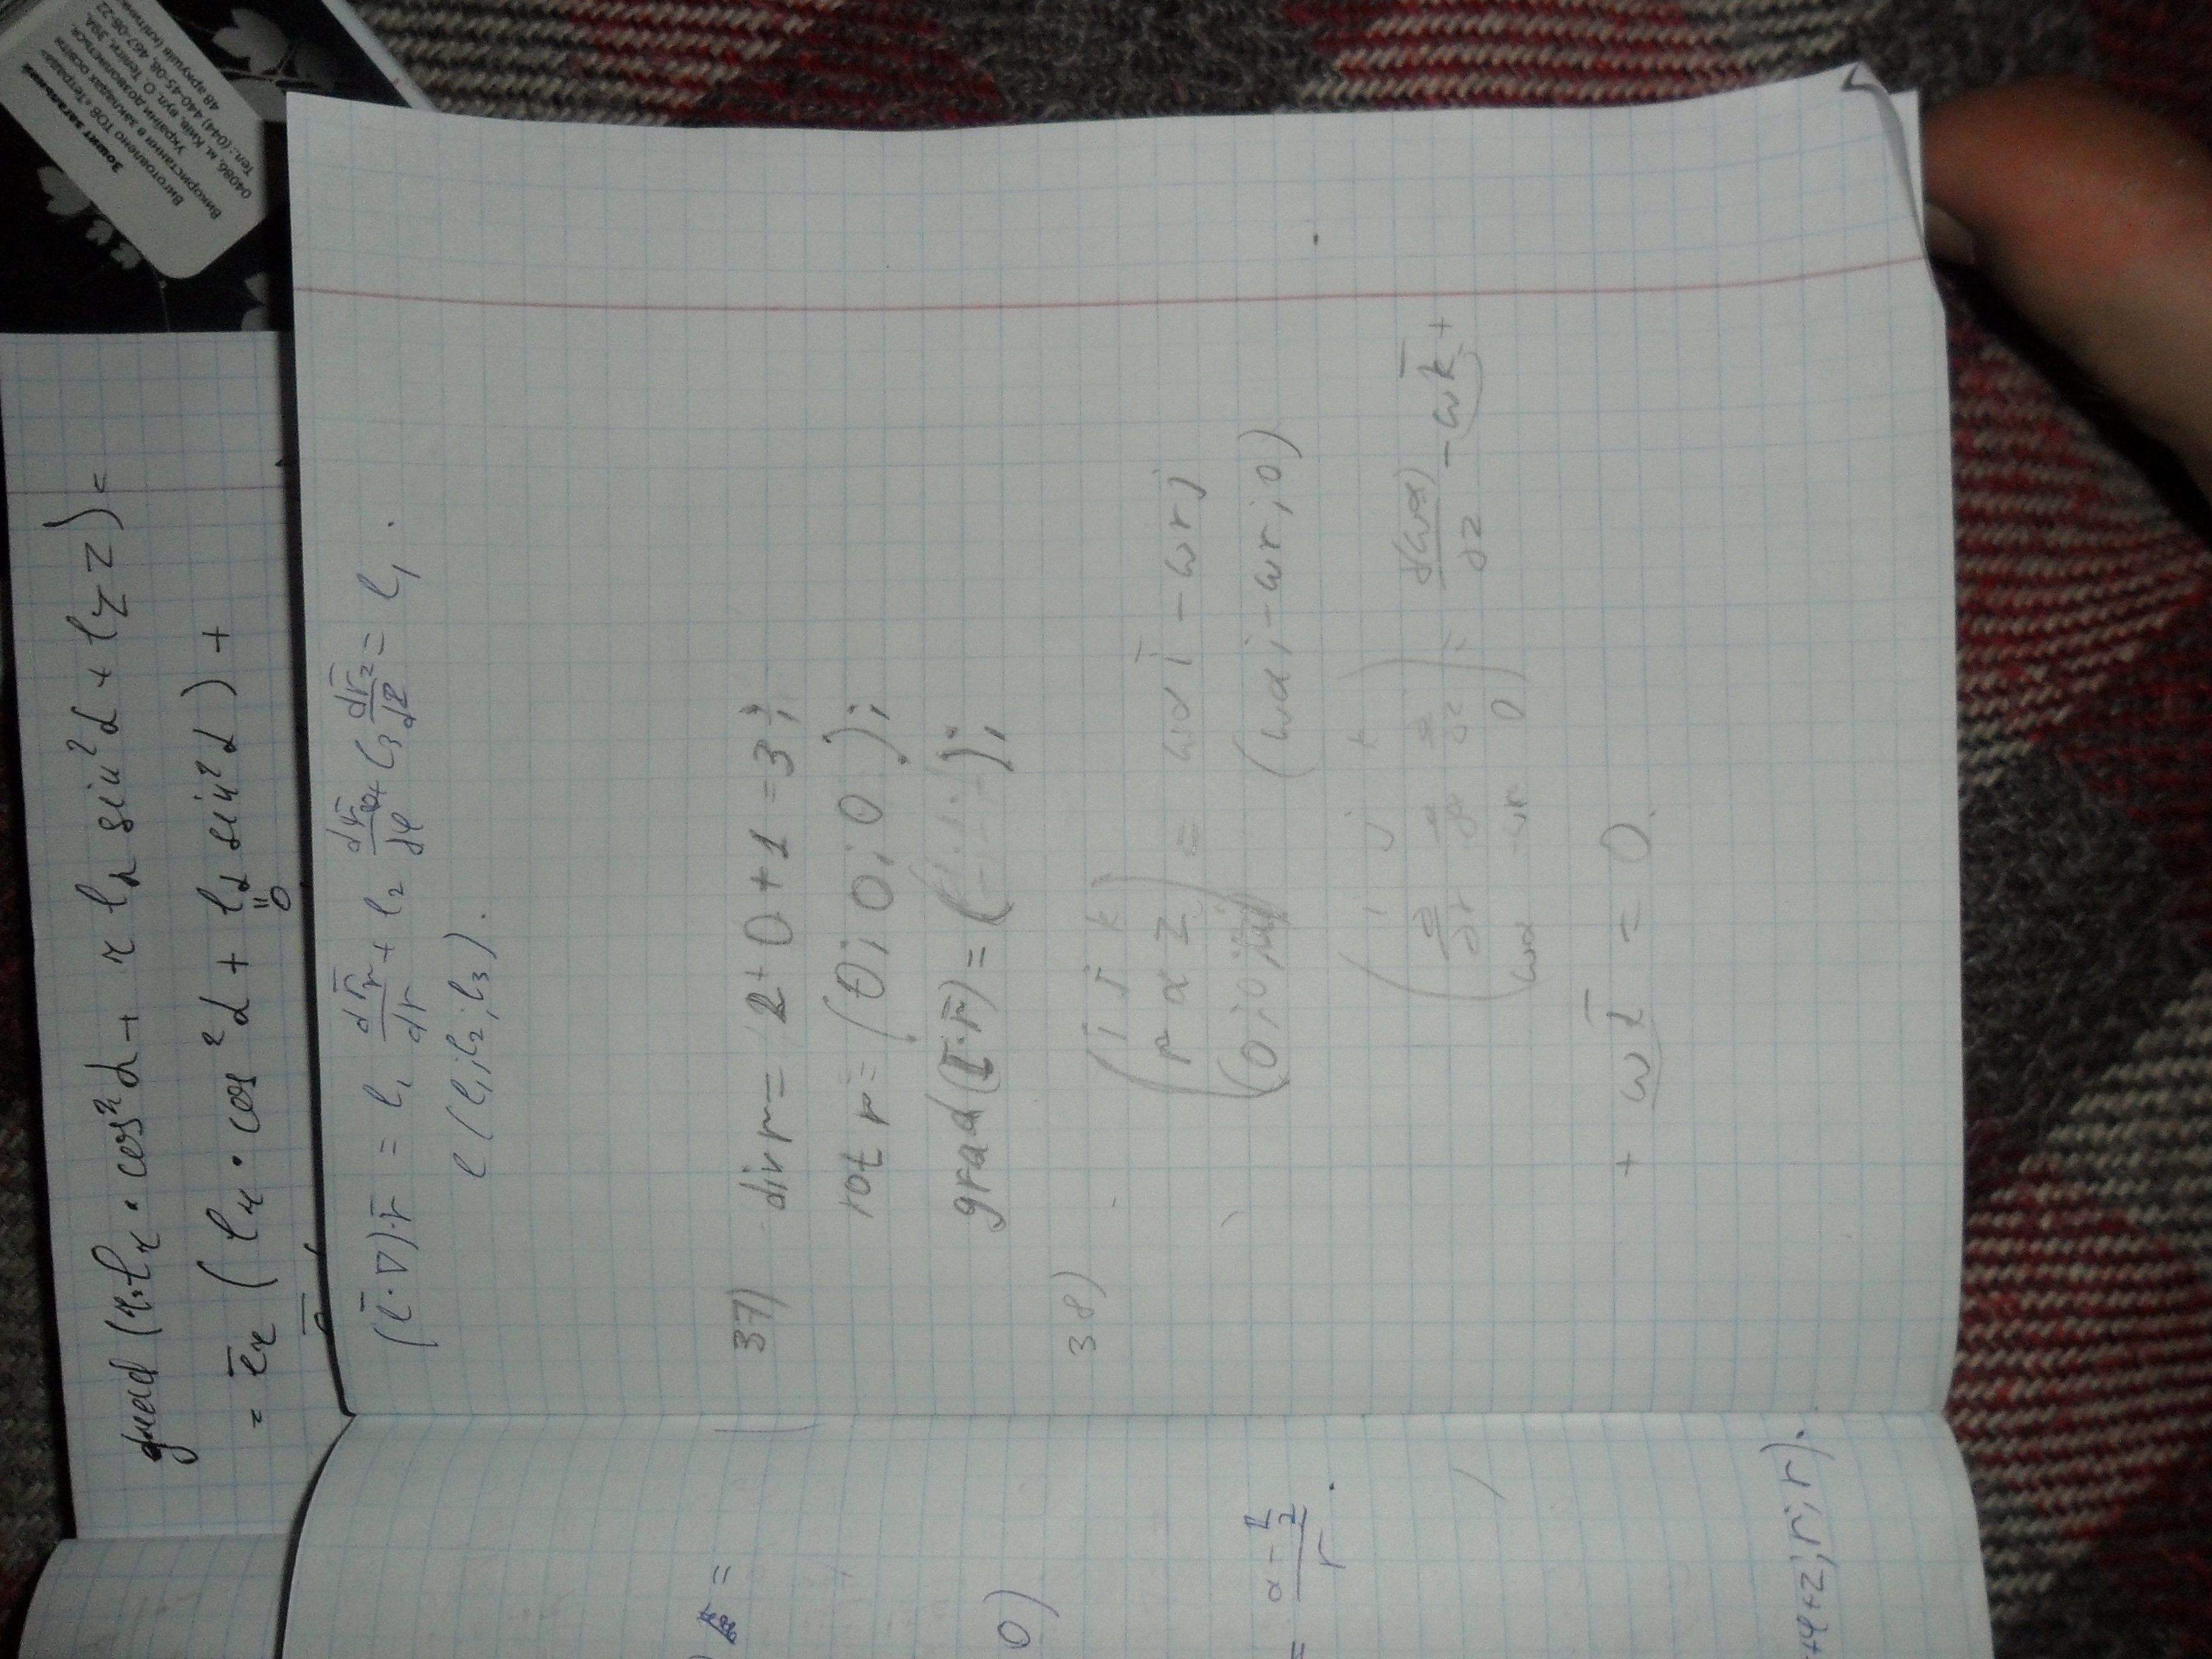 Зошит загальний
Виготовлено ТОВ «Тетрада»
Використання в закладах освіти
України дозволяється.
04086, м. Київ, вул. О. Теліги, 39а.
Тел.: (044) 440-45-08, 467-06-22
48 аркушів
grad (r·lᵣ·cos²α + r l_α sin²α + l_z z) =
= ēᵣ (lᵣ · cos²α + l_α sin²α) +
0
(l̄·∇)·r̄ = l₁ dr̄ᵣ/dr + l₂ + l₃ dr̄₂/dz = l₁.
l (l₁; l₂; l₃).
37) div r = 2 + 0 + 1 = 3;
rot r = (0; 0; 0);
grad (l̄·r̄) = ( );
38) ( i j k
r α z ) = ωα i̅ - ωr j
(0; 0; ) (ωα; -ωr; 0)
( i j k
∂/∂r ∂/∂α ∂/∂z
ωα -ωr 0 ) = ∂(ωα)/∂z - ωk̅ +
+ ω = 0.
=
0)
= r .
+φ+z; r; r).